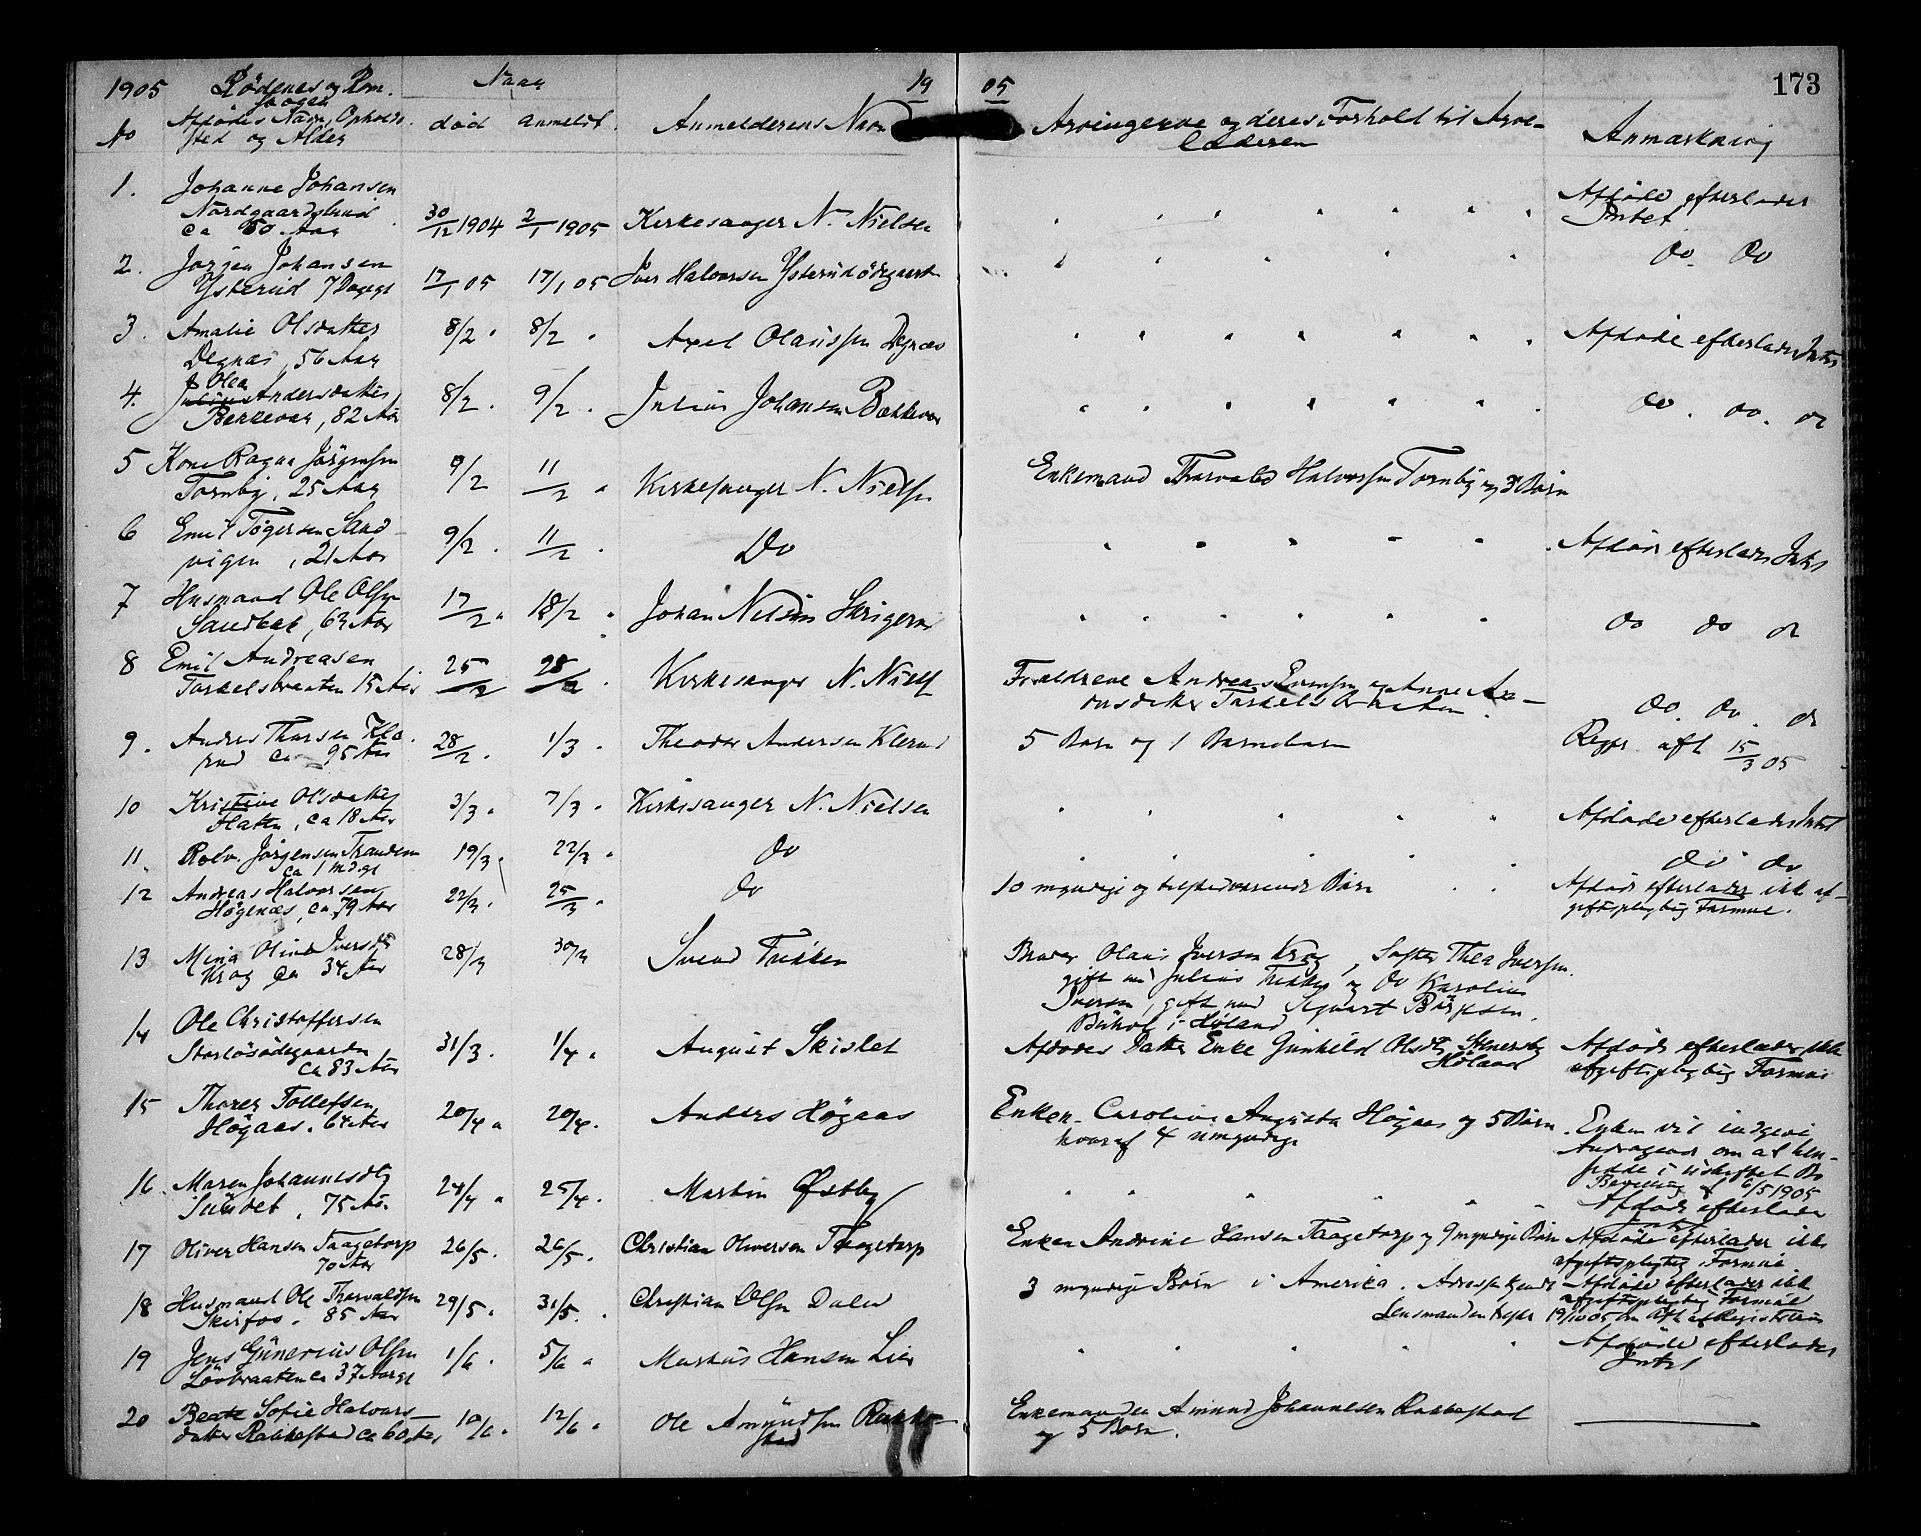 1905 Rödenes og Rom- Naar 19 05 173
skogen
No Afdødes Navn, Opholds- død anmeldt. Anmelderens Navn Arvingerne og deres Forhold til Arve-
sted og Alder laderen Anmærkning
1. Johanne Johansen Afdøde efterlader
Nordgaardslund 30/12 1904 2/1 1905 Kirkesanger N. Nielsen Intet
ca 80 Aar
2. Jørgen Johansen Do Do
Ysterud 7 Dage 17/1 05 17/1 05 Iver Halvorsen Ysterudødegaard
3. Amalie Olsdatter 8/2 " 8/2 " Axel Olaussen Degnæs Afdøde efterlader Intet
Degnæs, 56 Aar
4. Olea Andersdatter 8/2 " 9/2 " Julius Johansen Bækkevar do. do. do
Bekkevar, 82 Aar
5 Kone Ragna Jörgensen 9/2 11/2 " Kirkesanger N. Nielsen Enkemand Thorvald Halvorsen Tornby og 3 Børn
Tornby, 25 Aar
6 Emil Tøgersen Sand- 9/2 " 11/2 " Do Afdøde efterlader Intet
vigen, 21 Aar
7 Husmand Ole Olsen 17/2 " 18/2 " Johan Nilsen Skrigerud do do do
Sandbæk, 63 Aar
8 Emil Andreasen 25/2 28/2 " Kirkesanger N. Niels Forældrene Andreas Evensen og Anne Aa-
Torkelsbraaten 15 Aar onsdatter Torkelsbraaten. do. do. do
9. Andres Thorsen Kle- 28/2 " 1/3 " Theodor Andersen Klerud 5 Børn og 1 Barnebarn Regr. afh 15/3 05
rud ca 95 Aar
10 Kristine Olsdatter 3/3 " 7/3 " Kirkesanger N. Nielsen Afdøde efterlader Intet
Flaten, ca 18 Aar
11. Rolv. Jörgensen Trandem 19/3 " 22/3 " do do do
ca 1 Md. gl
12 Andreas Halvorsen 22/3 " 25/3 " do 10 myndige og tilstedeværende Børn Afdøde efterlader ikke af-
Högenæs, ca 79 Aar giftspligtig Formue.
13 Mina Oline Iversdtr 28/3 30/3 Svend Fukken Broder Olaus Iversen Krog, Søster Thea Iversen
Krog ca 34 Aar gift m Julius og do Karoline
Iversen, gift med Sigvart Børresen
Bühol i Høland
14 Ole Christoffersen 31/3. 1/4 " August Skislet Afdødes Datter Enke Gunhild Olsdtr Afdøde efterlader ikke
Storlösödegaarden Høland afgiftspligtig Formue
ca 83 Aar
15 Thorer Tollefsen 20/4 " 20/4. Anders Högaas Enken Caroline Augusta Högaas og 5 Børn Enken vil indgive
Högaas. 64 Aar hvoraf 4 umyndige Andragende om at hen-
sidde i uskiftet Bo
16. Maren Johannesdtr 24/4 " 25/4. Martin Østby Bevilling af 6/5 1905
Sundet, 75 Aar Afdøde efterlader
Intet
17 Oliver Hansen Taagetorp 26/5. 26/5. Christian Oliversen Taagetorp Enken Andrine Hansen Taagetorp og 9 myndige Børn Afdøde efterlader ikke
70 Aar afgiftspligtig Formue
18 Husmand Ole Thorvaldsen 29/5. 31/5. Christian Olsen Daler 3 myndige Børn i Amerika. Adresse kjendt Afdøde efterlader ikke
Skirfos. 85 Aar afgiftspligtig Formue
Lensmanden 19/10 05 om Afh af Registrering
19 Jens Günerius Olsen 1/6. 5/6 " Markus Hansen Lier Afdøde efterlader
Lövbraaten ca 37 Aar gl Intet
20 Beate Sofie Halvors- 10/6. 12/6 " Ole Amundsen Rakke- Enkemanden Amund Johannesen Rakkestad
datter Rakkestad ca 60 Aar stad og 5 Børn.